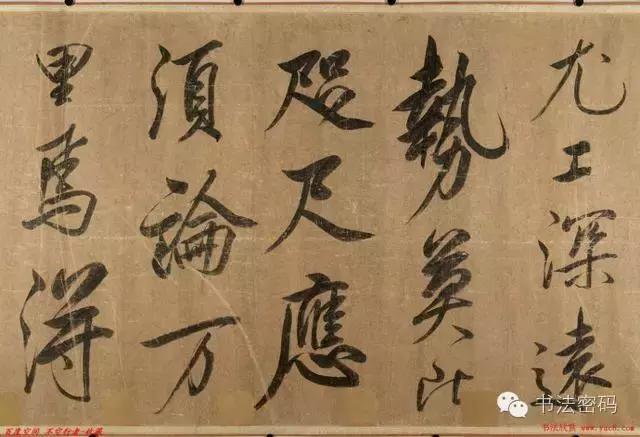 尤工深遠
勢莫比
咫尺應
須論万
里焉得
书法密码
百度空间 不空行者-收藏
书法欣赏 www.yac8.com